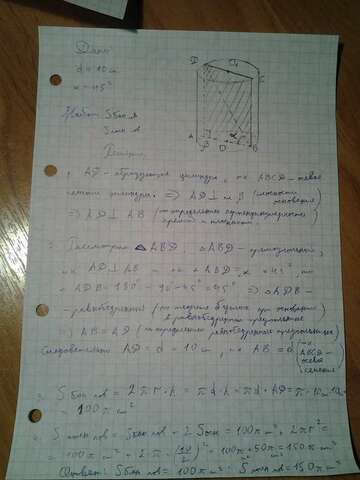 Дано
d = 10 см
α = 45°
Найти Sбок
Sпол
Решение
D O₁ C
A β O B
α
1. AD - образующая цилиндра, т.к. ABCD - осевое
сечение цилиндра. ⇒ AD ⊥ β
⇒ AD ⊥ AB (по определению перпендикулярности
прямой и плоскости)
2. Рассмотрим △ABD: △ABD - прямоугольный,
т.к. AD ⊥ AB α = 45°, то
∠ADB = 180° - 90° - 45° = 45° ⇒ ABD -
- равнобедренный (по при основании
в равнобедренном треугольнике)
AB = AD (по определению равнобедренного треугольника)
Следовательно AD = d = 10 см, AB = d (т.к. ABCD - осевое сечение)
3. Sбок пов = 2πr · h = πd · h = πd · AD = π · 10 · 10 =
= 100π см²
Sполн пов = Sбок пов + 2 Sосн = 100π см² + 2πr² =
= 100π см² + 2 · π · (10/2)² = 100π + 50π см² = 150π см²
Ответ: Sбок пов = 100π см²; Sполн пов = 150π см²